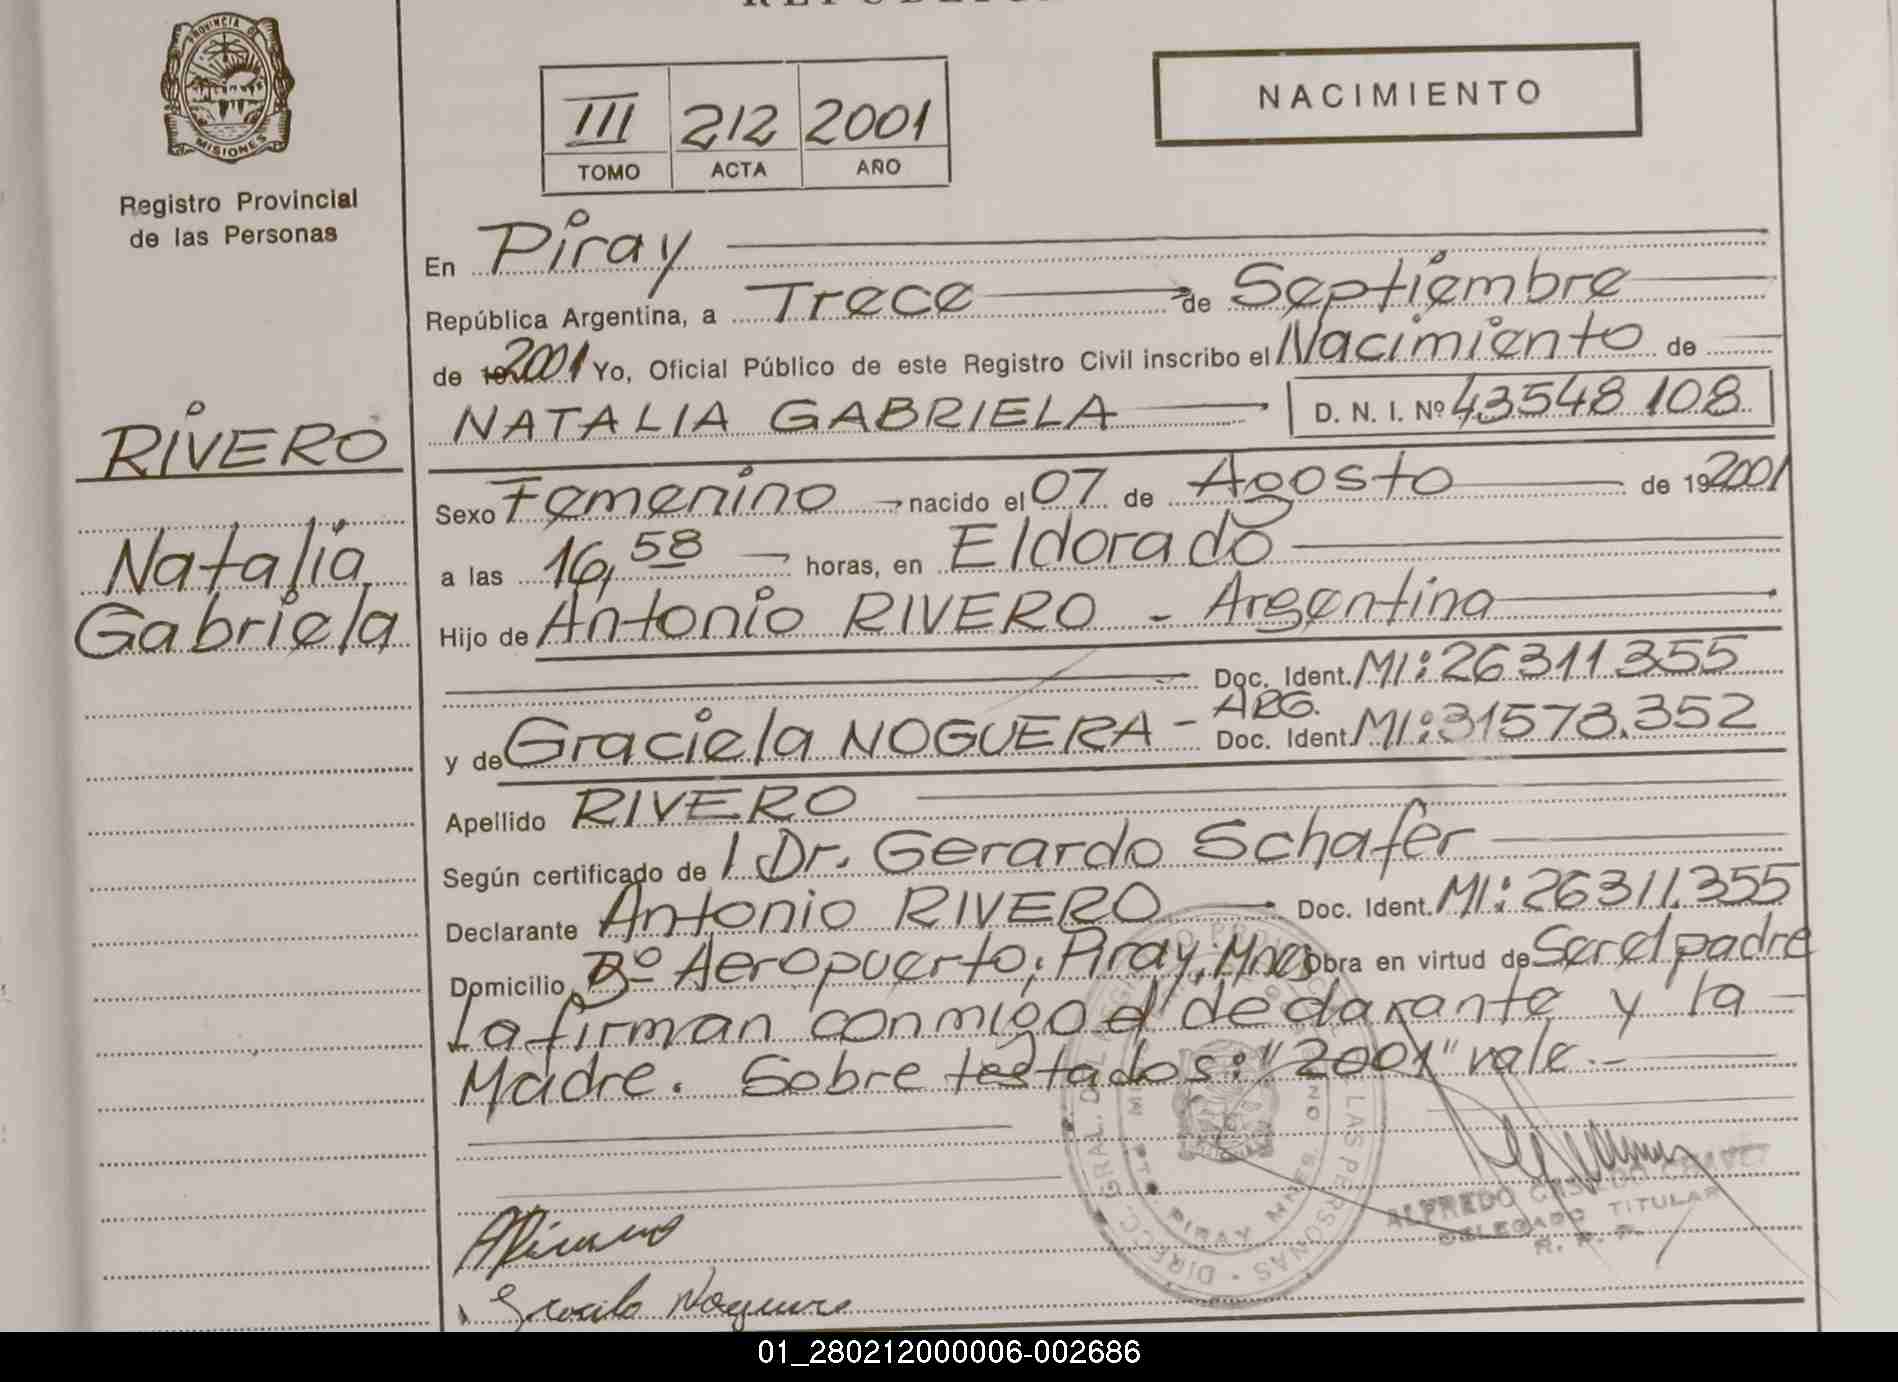 PROVINCIA DE
MISIONES
Registro Provincial
de las Personas
RIVERO
Natalia
Gabriela
III 212 2001
TOMO ACTA AÑO
NACIMIENTO
En Piray
República Argentina, a Trece de Septiembre
de 19 2001 Yo, Oficial Público de este Registro Civil inscribo el Nacimiento de
NATALIA GABRIELA D. N. I. Nº 43548108
Sexo Femenino nacido el 07 de Agosto de 19 2001
a las 16,58 horas, en Eldorado
Hijo de Antonio RIVERO - Argentina
Doc. Ident. MI: 26311.355
y de Graciela NOGUERA - ARG. Doc. Ident. MI: 31573.352
Apellido RIVERO
Según certificado de / Dr. Gerardo Schafer
Declarante Antonio RIVERO Doc. Ident. MI: 26311.355
Domicilio Bº Aeropuerto, Piray, Mnes Obra en virtud de Ser el padre
La firman conmigo el declarante y la
Madre. Sobre testados: "2001" vale.-
ALFREDO
DELEGADO TITULAR
R. P. P.
Graciela Noguera
01_280212000006-002686